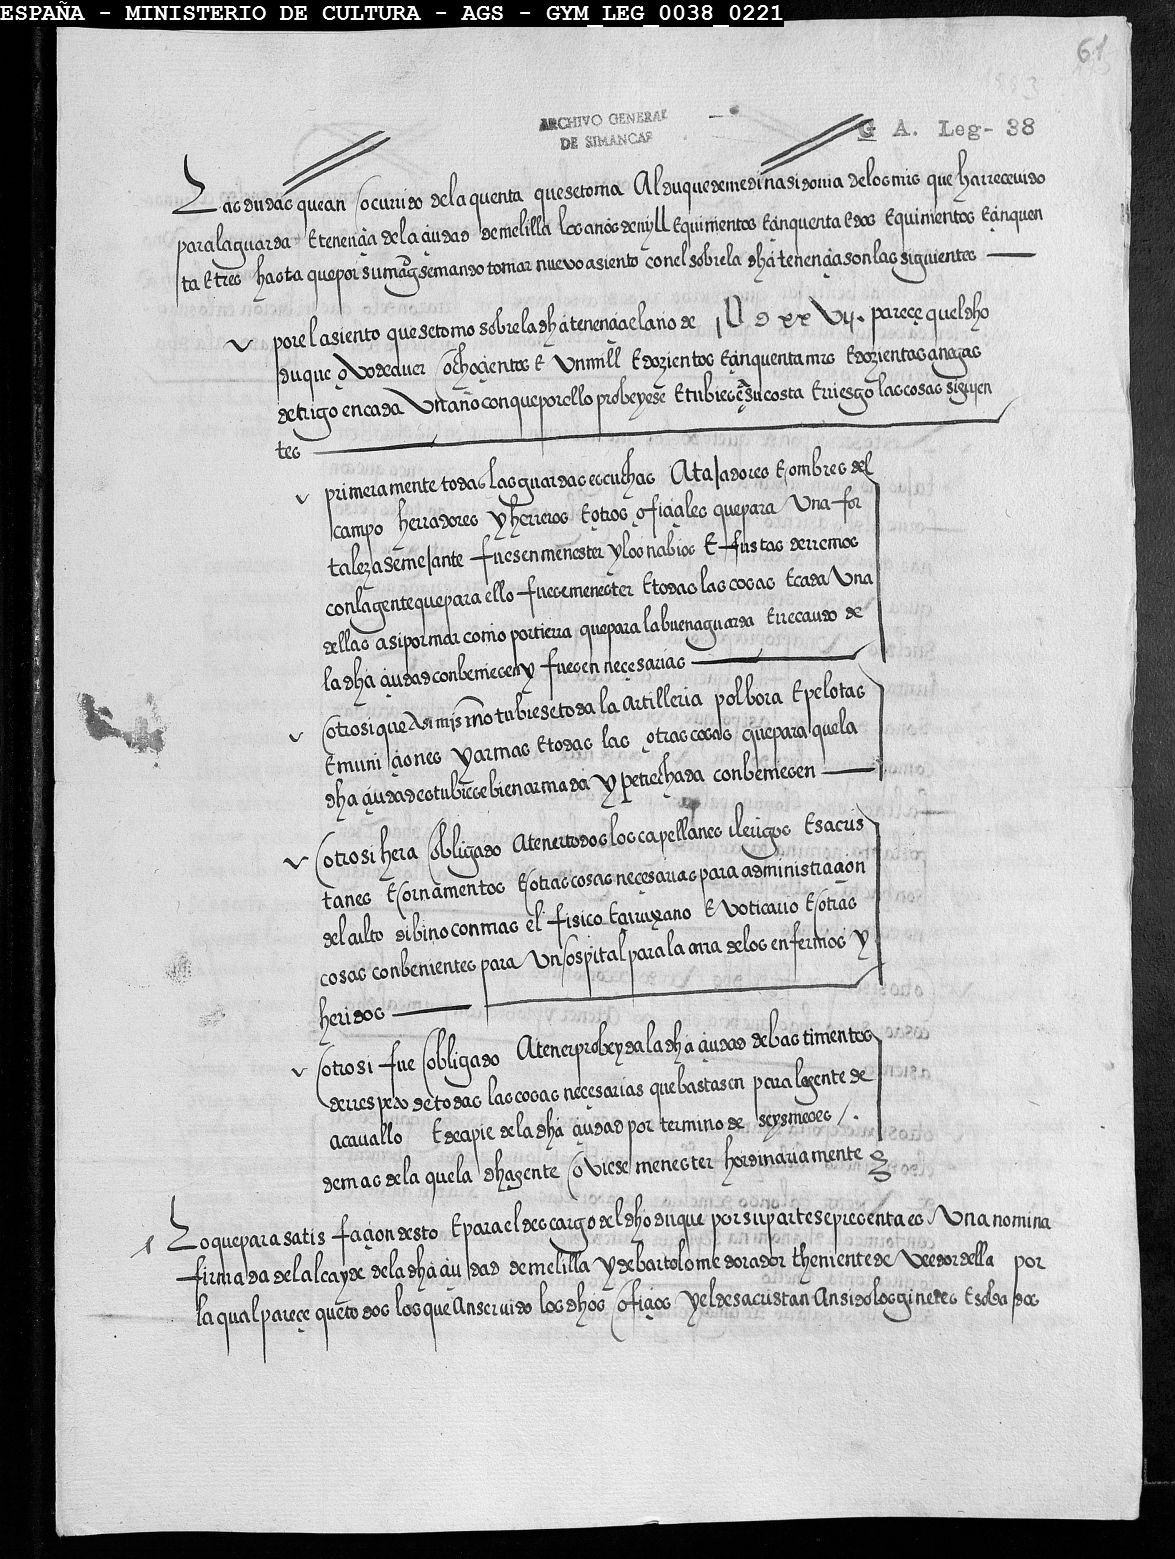 ESPAÑA - MINISTERIO DE CULTURA - AGS - GYM_LEG_0038_0221
61
ARCHIVO GENERAL
DE SIMANCAS
G A. Leg- 38
Las dudas que an ocurrido de la quenta que se toma Al duque de medina sidonia de los mrs que ha rrecevido
para la guarda E tenençia de la çiudad de melilla los años de myll E quinientos E çinquenta E dos E quinientos E çinquen
ta E tres hasta que por su magd se mando tomar nuevo asiento con el sobre la dha tenençia son las siguientes
por el asiento que se tomo sobre la dha tenençia el año de D xx Vij. pareçe quel dho
duque ovo de aver ochoçientos E Un mill E dozientos E çinquenta mrs E dozientas anegas
de trigo en cada Un año con que por ello probeyese E tubiese a su costa E rriesgo las cosas siguyen
tes
primeramente todas las guardas escuchas Atajadores E ombres del
campo herradores y herreros E otros ofiçiales que para Una for
taleza semejante fuesen menester y los nabios E fustas de rremos
con la gente que para ello fuese menester E todas las cosas E cada Una
dellas asi por mar como por tierra que para la buena guarda E rrecaudo de
la dha çiudad conbeniesen y fuesen neçesarias
otrosi que Asi mismo tubiese toda la artilleria polbora E pelotas
E muniçiones y armas E todas las otras cosas que para que la
dha çiudad estubiese bien armada y petrechada conbeniesen
otrosi hera obligado A tener todos los capellanes clerigos E sacris
tanes E ornamentos E otras cosas neçesarias para administraçion
del culto dibino con mas el fisico E çirujano E boticario E otras
cosas conbenientes para Un ospital para la cura de los enfermos y
heridos
otrosi fue obligado A tener probeyda la dha çiudad de bastimentos
de rrespeto de todas las cosas neçesarias que bastasen para la gente de
a cavallo E de a pie de la dha çiudad por termino de seys meses /.
demas de la que la dha gente oviese menester hordinariamente
Lo que para satisfaçion desto E para el descargo del dho duque por su parte se presenta es Una nomina
firmada del alcayde de la dha çiudad de melilla y de bartolome dorador theniente de veedor della por
la qual pareçe que todos los que An servido los dhos ofiçios y el de sacristan An sido los ginetes E soldados